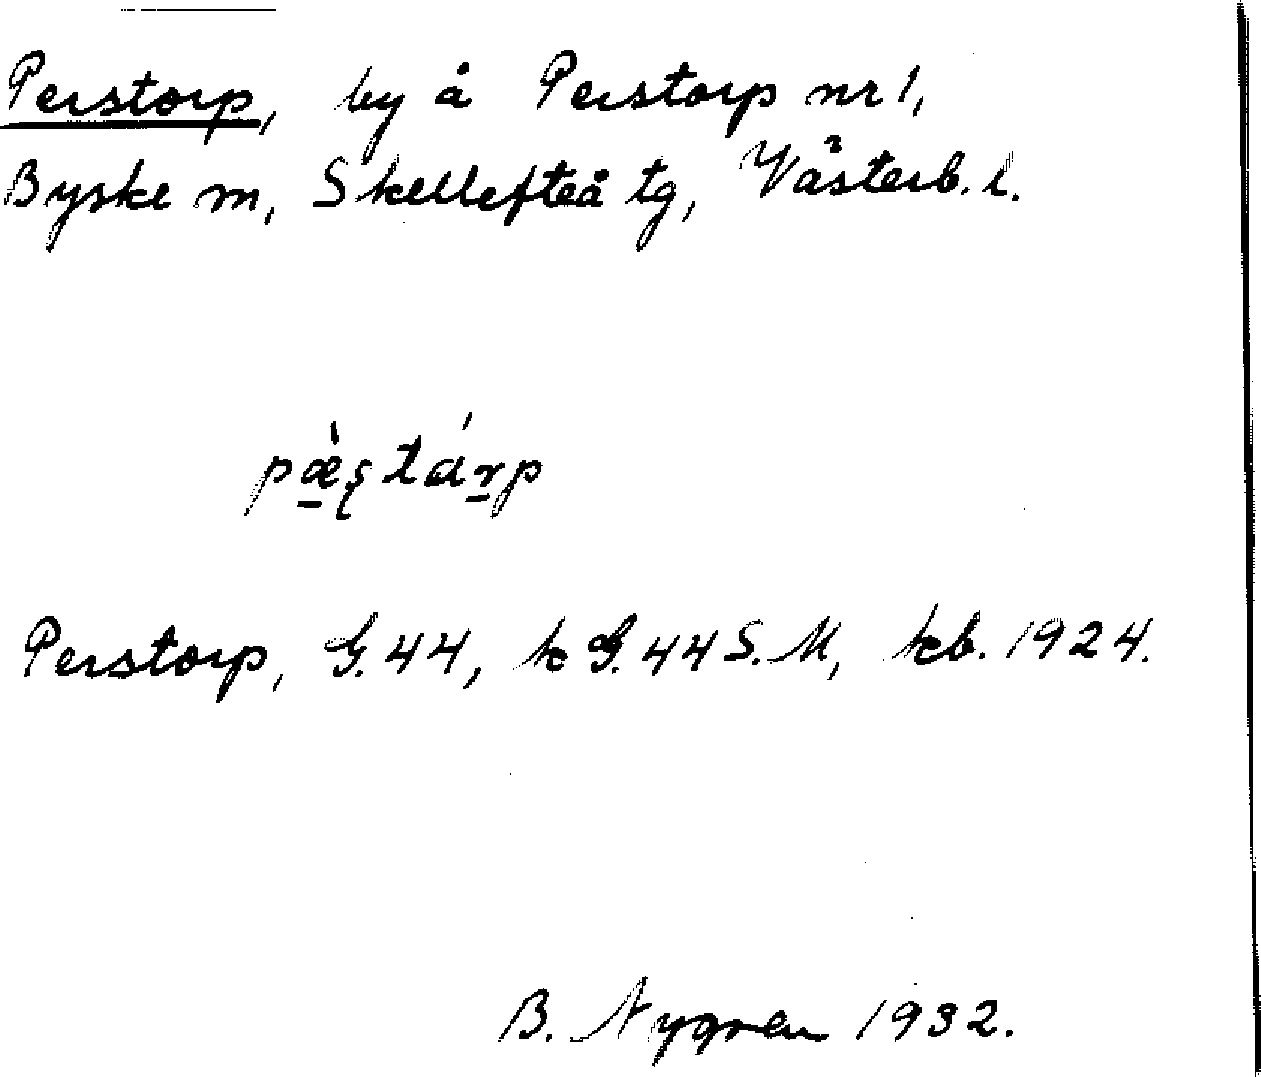 Perstorp, by å Perstorp nr 1,
Byske sn, Skellefteå tg, Västerb. l.
pæ̀ştárp
Perstorp, G. 44, k G. 44 S. M, kb. 1924.
B. Nygren 1932.